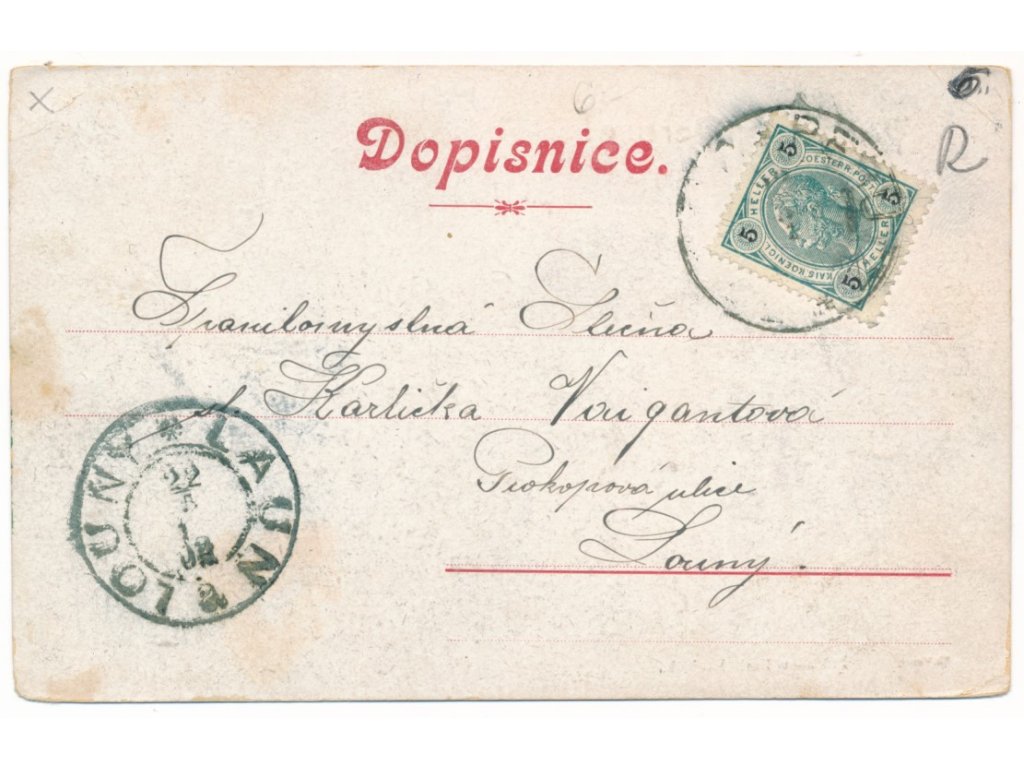 x
6-
R
Dopisnice.
5 5 5 5
HELLER
OESTERR. POST
HELLER
KAIS. KOENIGL.
Slečna
sl. Karlička Vaigantová
Prokopová ulice
Louny.
LAUN * LOUNY *
22
5
02